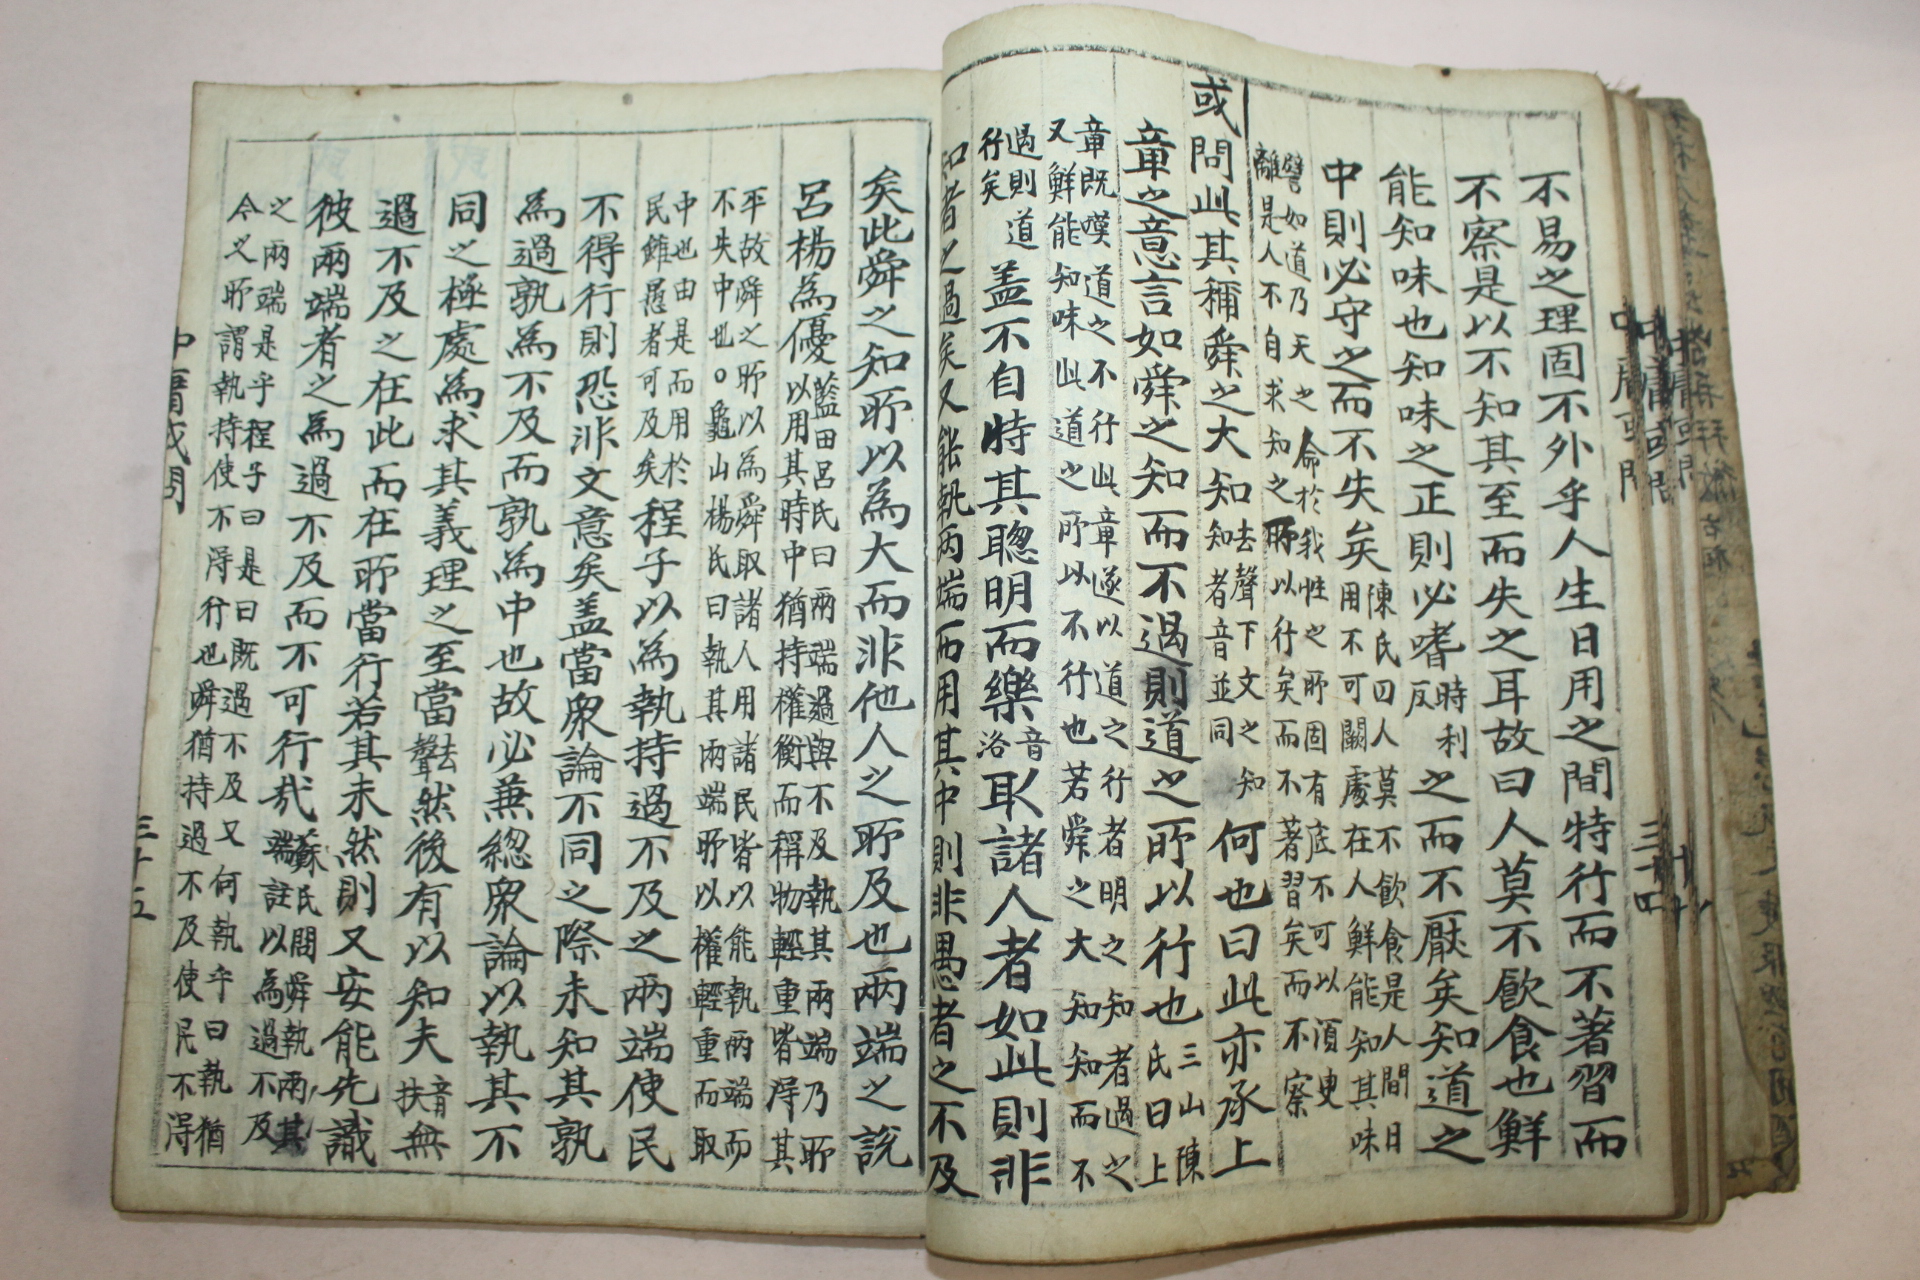 不易之理固不外乎人生日用之間特行而不著習而
不察是以不知其至而失之耳故曰人莫不飮食也鮮
能知味也知味之正則必嗜時利反之而不厭矣知道之
中則必守之而不失矣陳氏曰人莫不飮食是人間日用不可闕處在人鮮能知其味
譬如道乃天之命於我性之所固有底不可以須臾離是人不自求知之所以行矣而不著習矣而不察
或問此其稱舜之大知去聲下文之知知者音並同何也曰此亦承上
章之意言如舜之知而不過則道之所以行也三山陳氏曰上
章旣嘆道之不行此章遂以道之行者明之知者過之又鮮能知味此道之所以不行也若舜之大知知而不
過則道行矣盖不自恃其聦明而樂音洛取諸人者如此則非
知者之過矣又能執兩端而用其中則非愚者之不及
矣此舜之知所以為大而非他人之所及也兩端之說
呂楊為優藍田呂氏曰兩端過與不及執其兩端乃所以用其時中猶持權衡而稱物輕重皆淂其
平故舜之所以為舜取諸人用諸民皆以能執兩端而不失中也○龜山楊氏曰執其兩端所以權輕重而取
中也由是而用於民雖愚者可及矣程子以為執持過不及之兩端使民
不得行則恐非文意矣盖當衆論不同之際未知其孰
為過孰為不及而孰為中也故必兼總衆論以執其不
同之極處為求其義理之至當去聲然後有以知夫音扶無
過不及之在此而在所當行若其未然則又安能先識
彼兩端者之為過不及而不可行哉蘇氏問舜執兩端註以為過不及
之兩端是乎程子曰是曰旣過不及又何執乎曰執猶今之所謂執持使不淂行也舜猶持過不及使民不淂
中庸或問
三十五
中庸或問
三十四